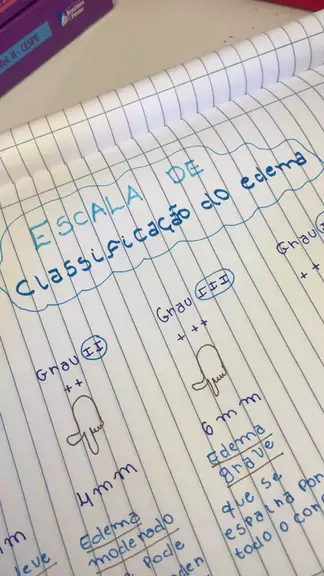 Vol. II - CESPE
ESCALA DE
Classificação do edema
Grau II
++
4mm
Edema
moderado
pode
Grau III
+++
6mm
Edema
grave
que se
espalha por
todo o
Grau
leve